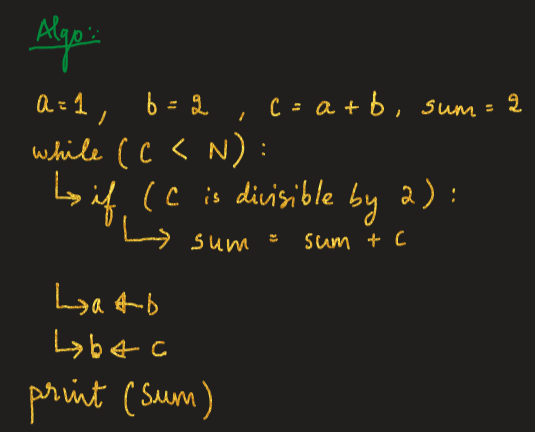 Algo:
a = 1, b = 2, c = a + b, sum = 2
while (C < N) :
↳ if (C is divisible by 2) :
↳ sum = sum + c
↳ a ← b
↳ b ← c
print (sum)